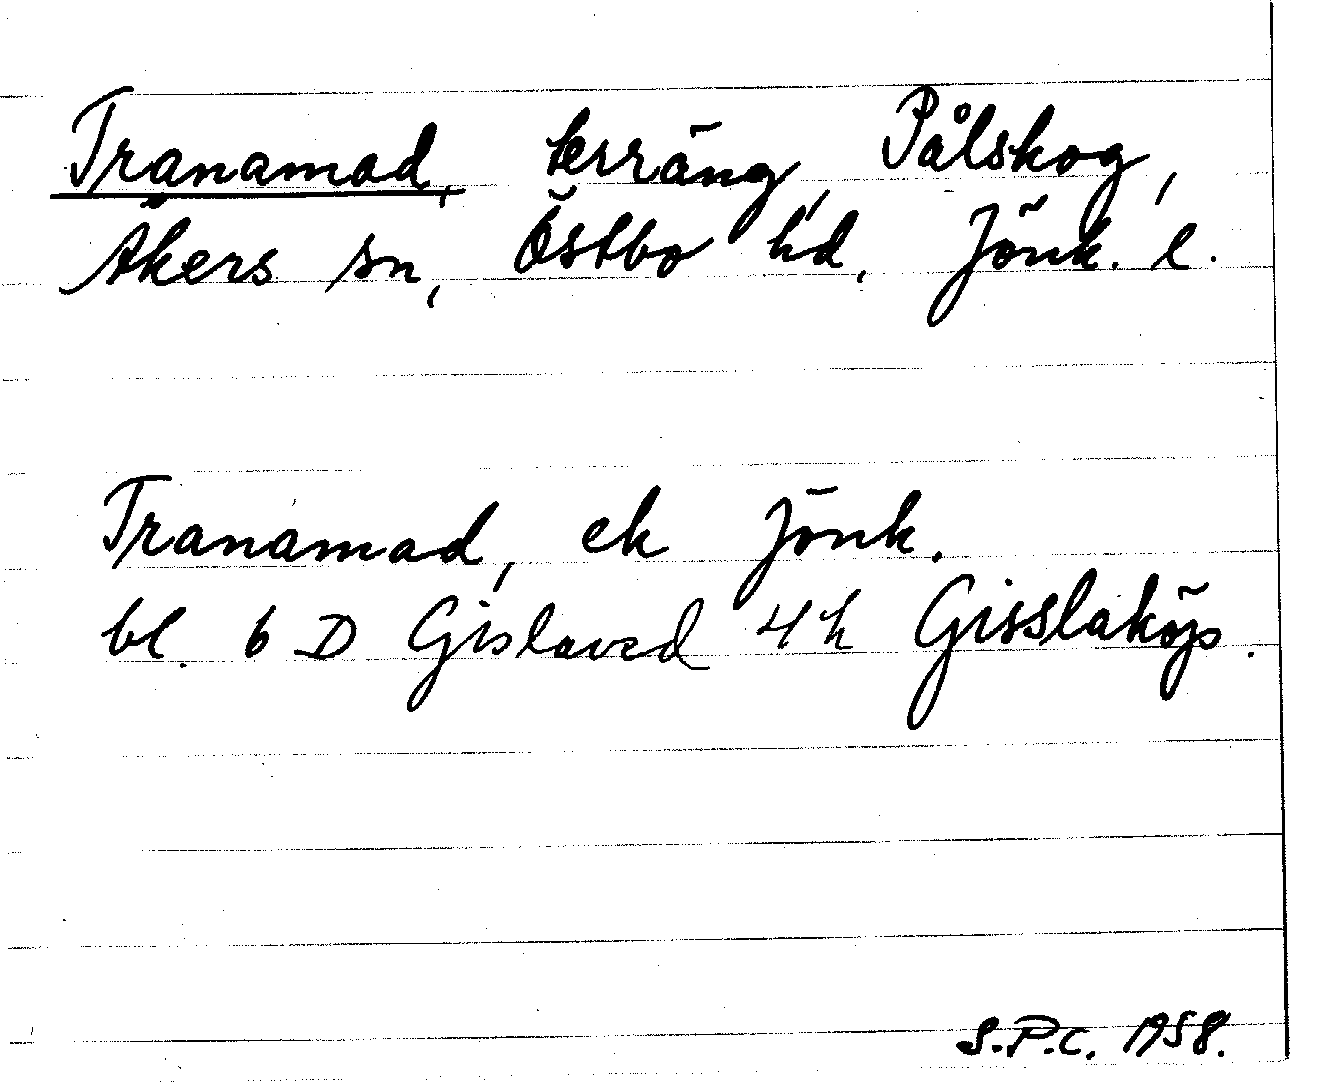 Tranamad, terräng, Pålskog,
Åkers sn, Östbo hd, Jönk. l.
Tranamad, ek Jönk.
bl. 6 D Gislaved 4 h Gisslaköp.
S.P.C. 1958.